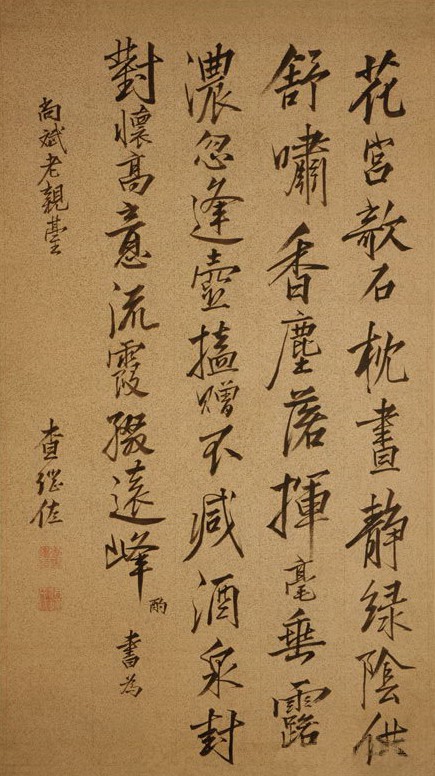 花宮欹石枕晝靜緑陰供
舒嘯香塵落揮毫垂露
濃忽逢壺榼贈不減酒泉封
對懷高意流霞綴遠峰 酌 書為
尚斌老親臺
查繼佐